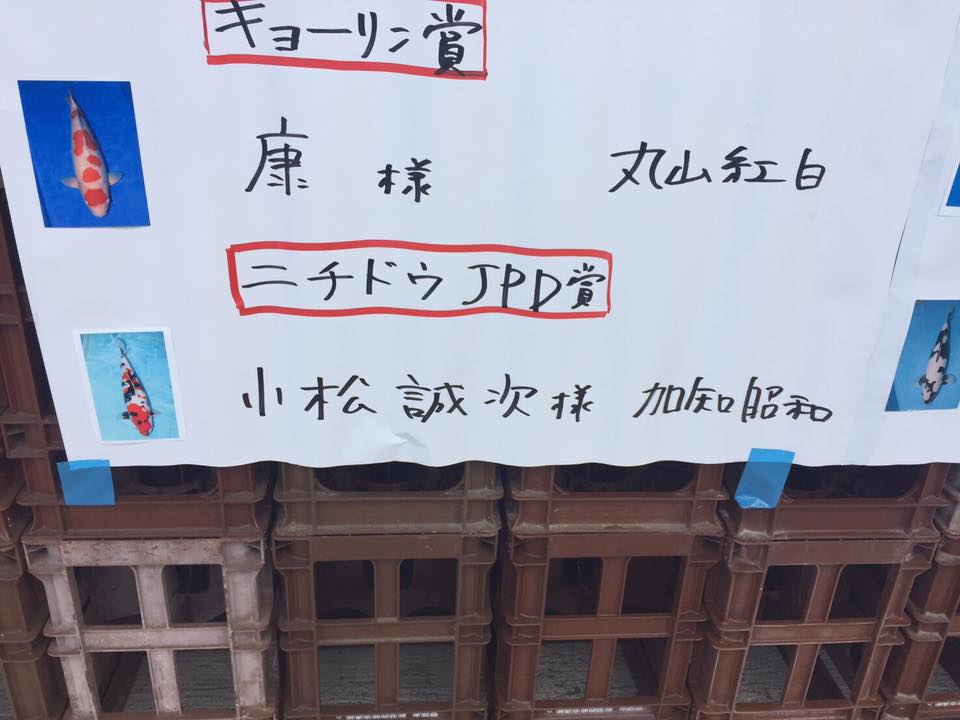 キョーリン賞
康 様 丸山紅白
ニチドウ JPD賞
小松 誠次様 加知昭和